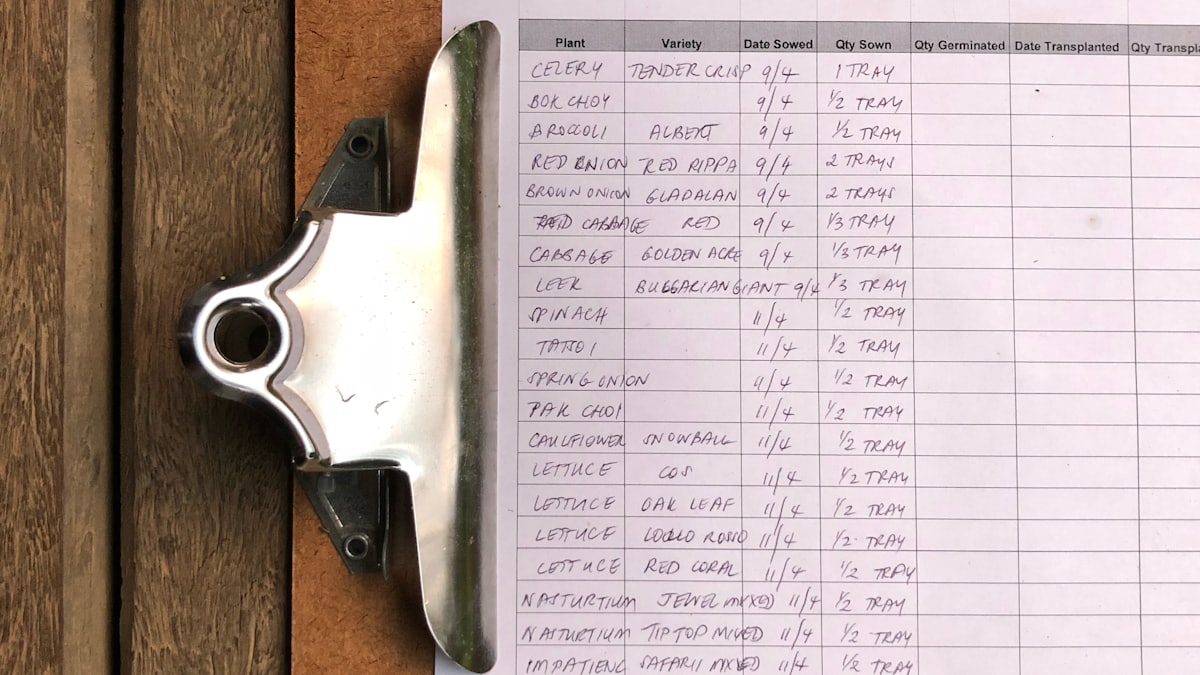 Plant Variety Date Sowed Qty Sown Qty Germinated Date Transplanted Qty Transpla
CELERY TENDER CRISP 9/4 1 TRAY
BOK CHOY 9/4 1/2 TRAY
BROCCOLI ALBERT 9/4 1/2 TRAY
RED ONION RED RIPPA 9/4 2 TRAYS
BROWN ONION GLADALAN 9/4 2 TRAYS
RED CABBAGE RED 9/4 1/3 TRAY
CABBAGE GOLDEN ACRE 9/4 1/3 TRAY
LEEK BULGARIAN GIANT 9/4 1/3 TRAY
SPINACH 11/4 1/2 TRAY
TATSOI 11/4 1/2 TRAY
SPRING ONION 11/4 1/2 TRAY
PAK CHOI 11/4 1/2 TRAY
CAULIFLOWER SNOWBALL 11/4 1/2 TRAY
LETTUCE COS 11/4 1/2 TRAY
LETTUCE OAK LEAF 11/4 1/2 TRAY
LETTUCE LOLLO ROSSO 11/4 1/2 TRAY
LETTUCE RED CORAL 11/4 1/2 TRAY
NASTURTIUM JEWEL MIXED 11/4 1/2 TRAY
NASTURTIUM TIP TOP MIXED 11/4 1/2 TRAY
IMPATIENC SAFARII MIXED 11/4 1/2 TRAY